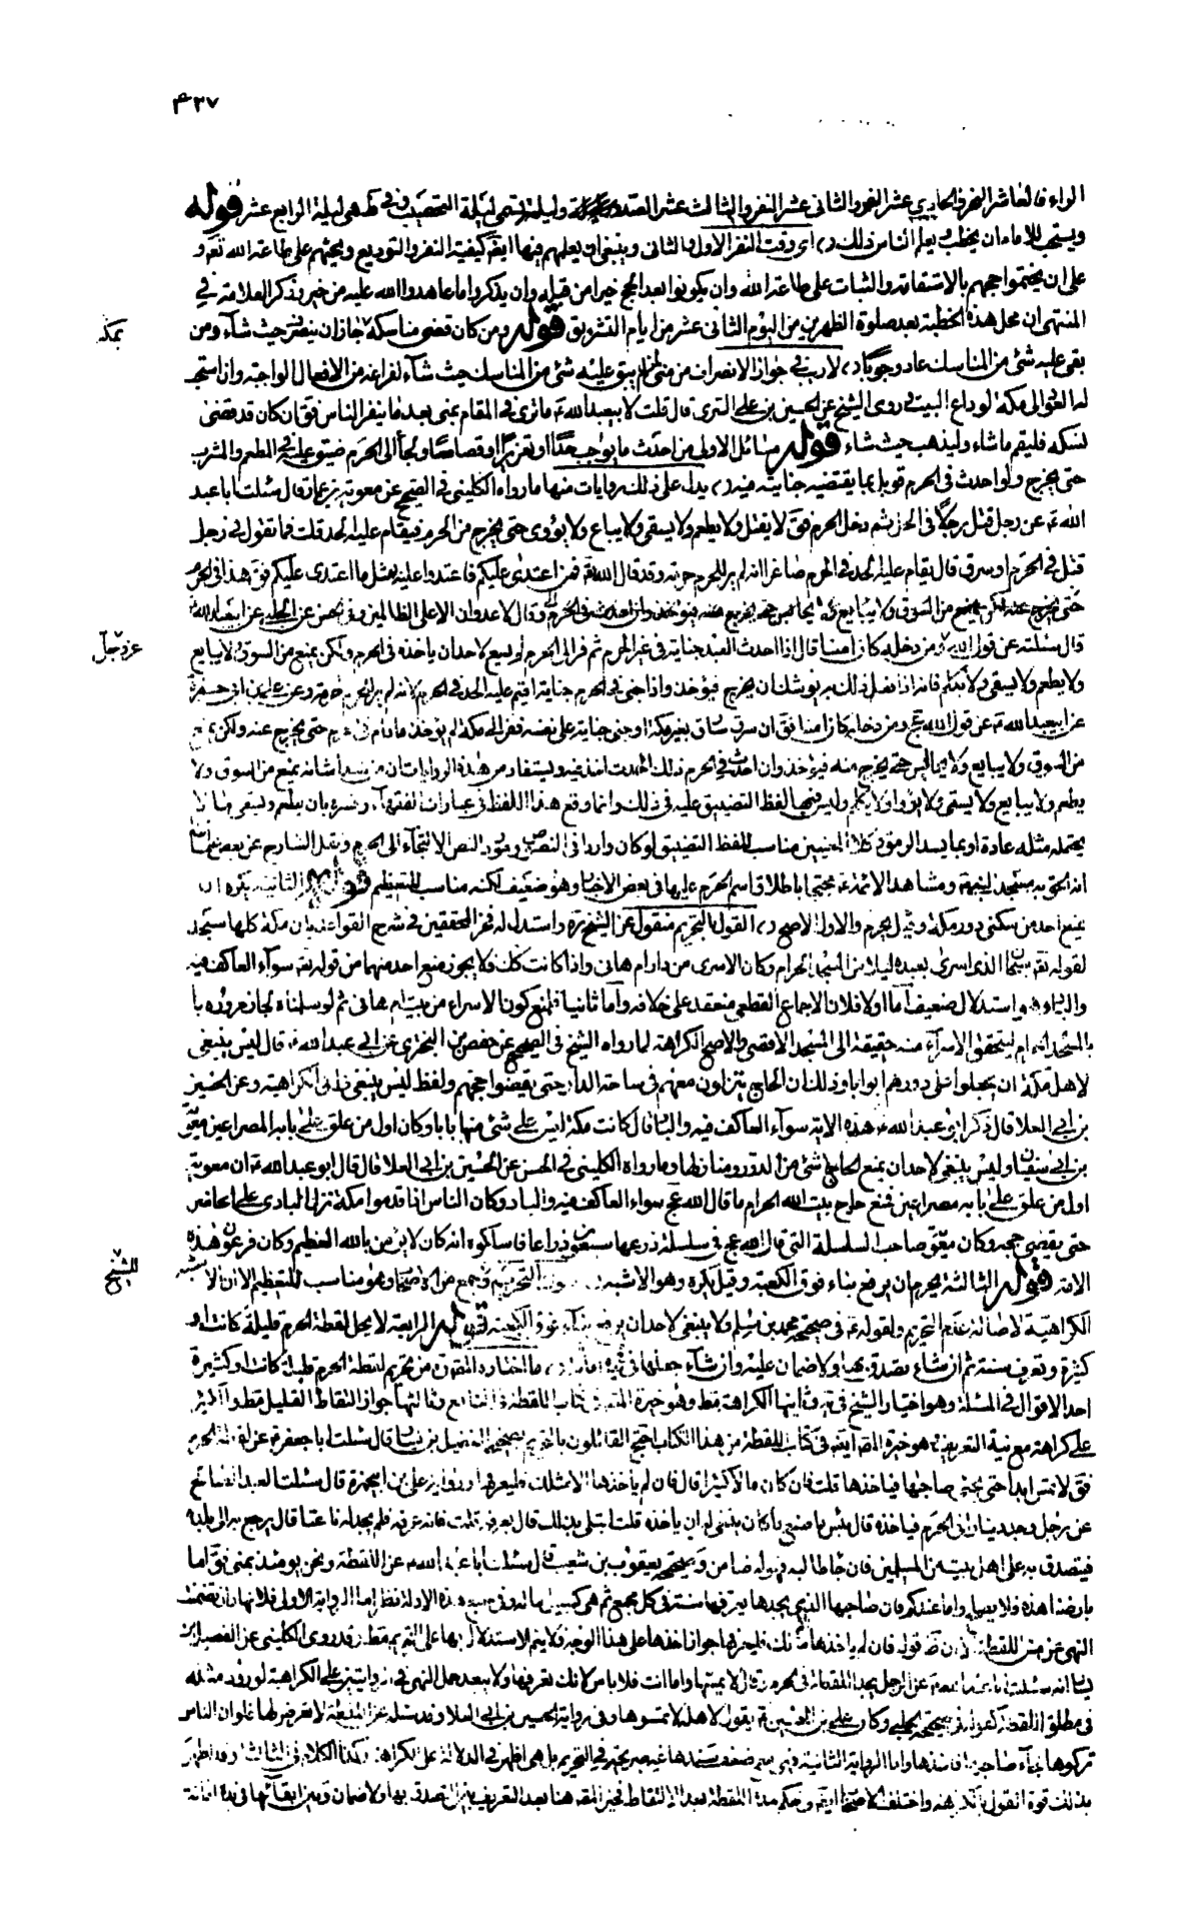 ۴۳۷
الراء فالعاشر النحر والحادي عشر القر والثانى عشر النفر والثالث عشر الصدر وليلته تسمى ليلة التحصيب وفى هى ليلة الرابع عشر قوله
ويستحب للامام ان يخطب ويعلم الناس ذلك اى وقت النفر الاول والثانى وينبغى ان يعلمهم فيها ايضا كيفية النفر والتوديع ويحثهم على طاعة الله تعم و
على ان يختموا حجهم بالاستقامة والثبات على طاعة الله وان يكونوا بعد الحج خيرا من قبله وان يذكروا ما عاهدوا الله عليه من خير وذكر العلامة فى
المنتهى ان محل هذه الخطبة بعد صلوة الظهرين من اليوم الثانى عشر من ايام التشريق قوله ومن كان قضى مناسكه جاز ان ينصرف حيث شاء ومن
بمكة
بقى عليه شئ من المناسك عاد وجوبا لا ريب فى جواز الانصراف من منى لمن لم يبق عليه شئ من المناسك حيث شاء لفراغه من الافعال الواجبة وانما استحب
له العود الى مكة لوداع البيت روى الشيخ عن الحسين بن على السرى قال قلت لابيعبد الله ع ما ترى فى المقام بمنى بعد ما ينفر الناس فق ان كان قد قضى
نسكه فليقم ما شاء وليذهب حيث شاء قوله مسائل الاولى من احدث ما يوجب حدا او تعزيرا او قصاصا ولجأ الى الحرم ضيق عليه فى المطعم والمشرب
حتى يخرج ولو احدث فى الحرم قوبل بما يقتضيه جنايته فيه يدل على ذلك روايات منها ما رواه الكلينى فى الصحيح عن معوية بن عمار قال سئلت ابا عبد
الله ع عن رجل قتل رجلا فى الحل ثم دخل الحرم فق لا يقتل ولا يطعم ولا يسقى ولا يباع ولا يؤوى حتى يخرج من الحرم فيقام عليه الحد قلت فما تقول فى رجل
قتل فى الحرم او سرق قال يقام عليه الحد فى الحرم صاغرا انه لم ير للحرم حرمة وقد قال الله فمن اعتدى عليكم فاعتدوا عليه بمثل ما اعتدى عليكم فق هذا فى الحرم
عز وجل
قال سئلته عن قول الله ومن دخله كان امنا قال اذا احدث العبد جناية فى غير الحرم ثم فر الى الحرم لم يسع لاحد ان ياخذه فى الحرم ولكن يمنع من السوق ولا يبايع
ولا يطعم ولا يسقى ولا يكلم فانه اذا فعل ذلك به يوشك ان يخرج فيؤخذ واذا جنى فى الحرم جناية اقيم عليه الحد فى الحرم لانه لم ير للحرم حرمة وعن على بن ابى حمزة
عن ابيعبد الله ع عن قول الله عج ومن دخله كان امنا فق ان سرق سارق بغير مكة او جنى جناية على نفسه ففر الى مكة لم يؤخذ ما دام فى الحرم حتى يخرج عنه ولكن يمنع
من السوق ولا يبايع ولا يجالس حتى يخرج منه فيؤخذ وان احدث فى الحرم ذلك الحدث اخذ فيه ويستفاد من هذه الروايات ان من هذا شانه يمنع من السوق ولا
يطعم ولا يبايع ولا يسقى ولا يؤوى ولا يكلم وليس فيها لفظ التضييق عليه فى ذلك وانما وقع هذا اللفظ فى عبارات الفقهاء وفسروه بان يطعم ويسقى ما لا
يحتمله مثله عادة او بما يسد الرمق وكلا المعنيين مناسب للفظ التضييق لو كان واردا فى النصوص ومورد النص الالتجاء الى الحرم ونقل الشارح عن بعض علمائنا
انه الحق به مسجد النبى ومشاهد الائمة محتجا باطلاق اسم الحرم عليها فى بعض الاخبار وهو ضعيف لكنه مناسب للتعظيم قوله الثانية يكره ان
يمنع احد من سكنى دور مكة وقيل يحرم والاول الاصح القول بالتحريم منقول عن الشيخ ره واستدل له فخر المحققين فى شرح القواعد بان مكة كلها مسجد
لقوله تع سبحان الذى اسرى بعبده ليلا من المسجد الحرام وكان الاسرى من دار ام هانى واذا كانت كذلك فلا يجوز منع احد منها من قوله تع سواء العاكف فيه
والباد وهو استدلال ضعيف اما اولا فلان الاجماع القطعى منعقد على خلافه واما ثانيا فلمنع كون الاسراء من بيت ام هانى ثم لو سلمناه لجاز مروره با
بالمسجد الحرام ليتحقق الاسراء منه حقيقة الى المسجد الاقصى والاصح الكراهة لما رواه الشيخ فى الصحيح عن حفص بن البخترى عن ابى عبد الله ع قال ليس ينبغى
لاهل مكة ان يجعلوا على دورهم ابوابا وذلك ان الحاج ينزلون معهم فى ساحة الدار حتى يقضوا حجهم ولفظ ليس ينبغى ظ فى الكراهية وعن الحسين
بن ابى العلا قال ذكر ابو عبد الله ع هذه الاية سواء العاكف فيه والباد قال كانت مكة ليس على شئ منها باب وكان اول من علق على بابه المصراعين معوية
بن ابى سفيان وليس ينبغى لاحد ان يمنع الحاج شئ من الدور ومنازلها وما رواه الكلينى فى الحسن عن الحسين بن ابى العلا قال قال ابو عبد الله ع ان معوية
اول من علق على بابه مصراعين فمنع حاج بيت الله الحرام ما قال الله عج سواء العاكف فيه والباد وكان الناس اذا قدموا مكة نزل البادى على الحاضر
حتى يقضى حجه وكان معوية صاحب السلسلة التى قال الله عج فى سلسلة ذرعها سبعون ذراعا فاسلكوه انه كان لا يؤمن بالله العظيم وكان فرعون هذه
للشيخ
الامة قوله الثالثة يحرم ان يرفع بناء فوق الكعبة وقيل يكره وهو الاشبه القول بالتحريم وجمع من الاصحاب وهو مناسب للتعظيم الا ان الاشبه
الكراهية لاصالة عدم التحريم ولقوله ع فى صحيحة محمد بن مسلم ولا ينبغى لاحد ان يرفع بناء فوق الكعبة قوله الرابعة لا يحل لقطة الحرم قليلة كانت او
كثيرة وتعرف سنة ثم ان شاء تصدق بها ولا ضمان عليه وان شاء جعلها فى يده امانة ما اختاره المصنف من تحريم لقطة الحرم قليلة كانت او كثيرة
احد الاقوال فى المسئلة وهو اختيار الشيخ فى يه وثانيها الكراهة مط وهو خيرة المصنف فى كتاب اللقطة من النافع وثالثها جواز التقاط القليل مط والكثير
على كراهة مع نية التعريف وهو خيرة المصنف ايضا فى كتاب اللقطة من هذا الكتاب احتج القائلون بالتحريم بصحيحة الفضيل بن يسار قال سئلت ابا جعفر ع عن لقطة الحرم
فق لا تمس ابدا حتى يجئ صاحبها فياخذها قلت فان كان مالا كثيرا قال فان لم ياخذها الا مثلك فليعرفها ورواية على بن ابيحمزة قال سئلت العبد الصالح
عن رجل وجد دينارا فى الحرم فياخذه قال بئس ما صنع ما كان ينبغى له ان ياخذه قلت ابتلى بذلك قال يعرفه قلت فانه عرفه فلم يجد له باغيا قال يرجع به الى بلده
فيتصدق به على اهل بيت من المسلمين فان جاء طالبه فهو له ضامن وصحيحة يعقوب بن شعيب قال سئلت ابا عبد الله ع عن اللقطة ونحن يومئذ بمنى فق اما
بارضنا هذه فلا يصلح واما عندكم فان صاحبها الذى يجدها يعرفها سنة فى كل مجمع ثم هى كسبيل ماله وفى جميع هذه الادلة نظر اما الرواية الاولى فلانها وان تضمنت
النهى عن مس اللقطة الا ان ظ قوله فان لم ياخذها الا مثلك فليعرفها جواز اخذها على هذا الوجه فلا يتم الاستدلال بها على التحريم مط وقد روى الكلينى عن الفضيل بن
يسار انه سئلت ابا عبد الله ع عن الرجل يجد اللقطة فى الحرم قال لا يمسها واما انت فلا باس لانك تعرفها ولا يبعد حمل النهى فى الروايتين على الكراهة لورود مثله
فى مطلق اللقطة كقوله فى صحيحة الحلبى وكان على بن الحسين ع يقول لاهله لا تمسوها وفى رواية الحسين بن ابى العلا وقد سئله عن اللقطة لا تعرض لها فلو ان الناس
تركوها لجاء صاحبها فاخذها واما الرواية الثانية فهى مع ضعف سندها غير صريحة فى التحريم بل هى اظهر فى الدلالة على الكراهة وكذا الكلام فى الثالثة وقد ظهر
بذلك قوة القول بالكراهة واختلف الاصحاب ايضا فى حكم هذه اللقطة بعد الالتقاط فخير المصنف هنا بعد التعريف بين التصدق بها ولا ضمان وبين ابقائها فى يده امانة